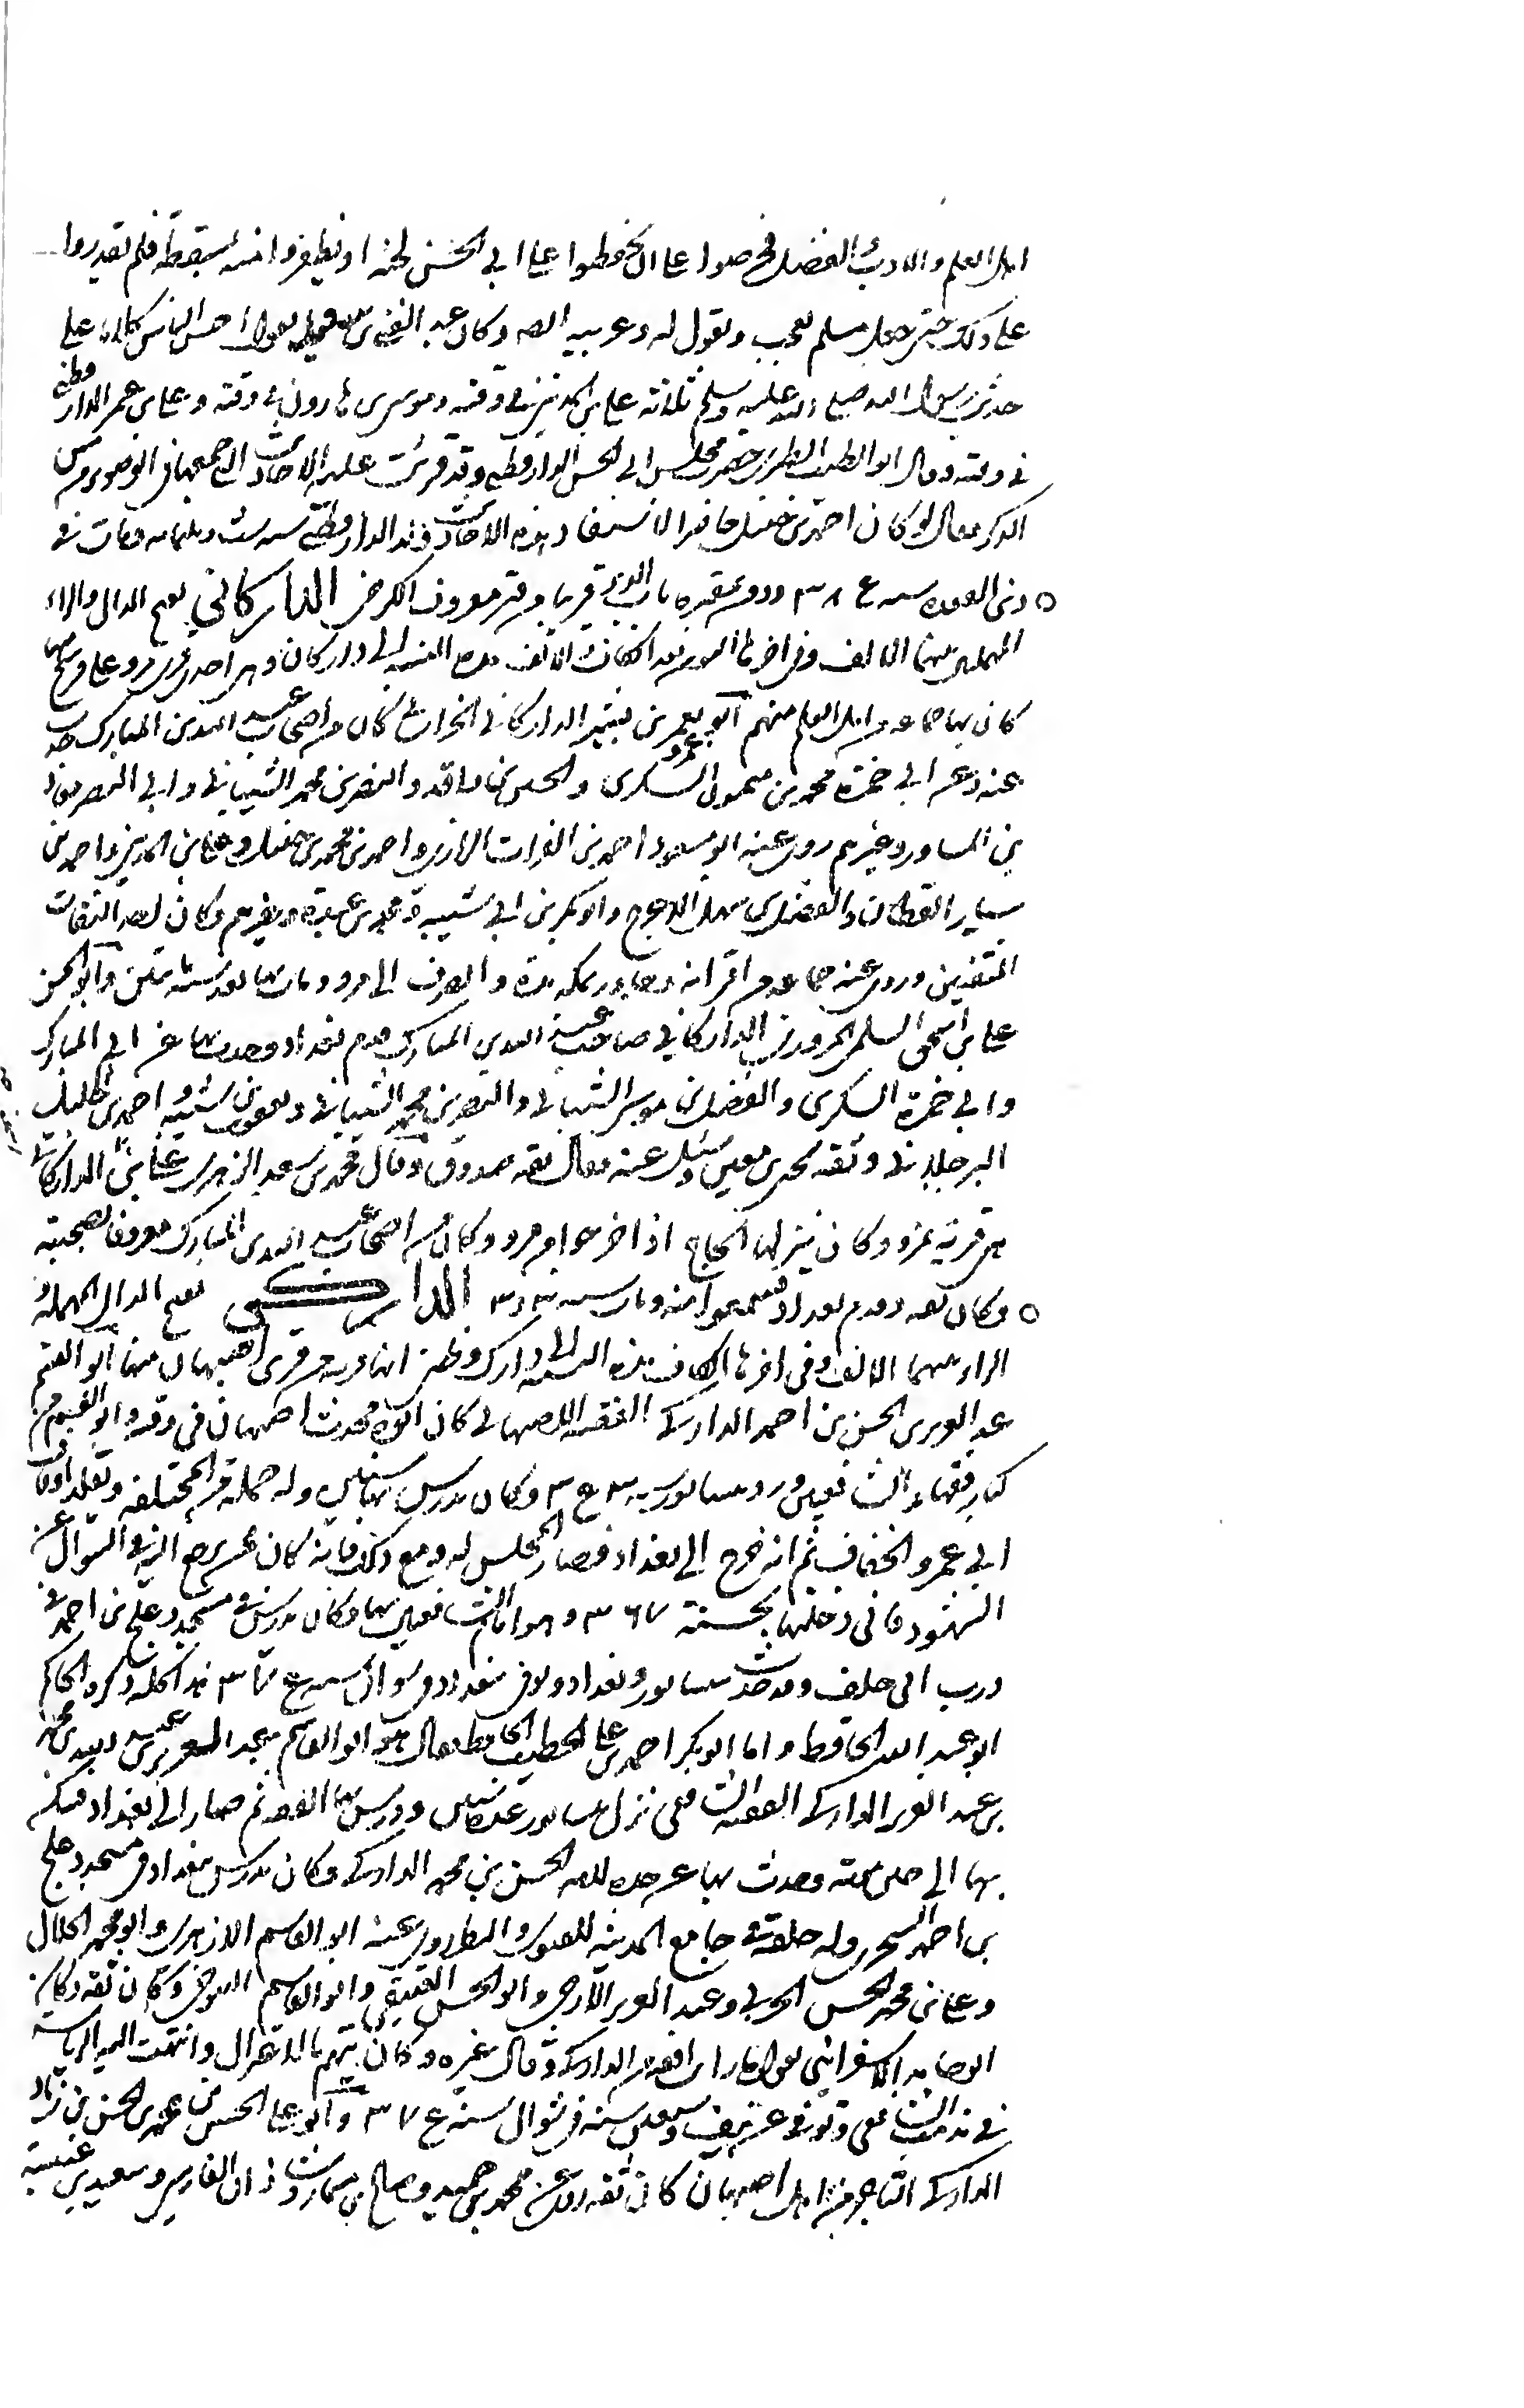 اهل العلم والادب والفضل فحرصوا على ان يحفظوا على ابي الحسن لحنة او يظفروا منه بسقطة فلم يقدروا
على ذلك حتى جعل مسلم يعجب ويقول له وعربية ايضا وكان عبد الغني بن سعيد يقول احسن الناس كلاما على
حديث رسول الله صلى الله عليه وسلم ثلاثة على بن المديني في وقته وموسى بن هارون في وقته وعلى بن عمر الدارقطني
في وقته وقال ابو الطيب الطبري حضرت مجلس ابي الحسن الدارقطني وقد قرئت عليه الاحاديث التي جمعها في الوضوء من مس
الذكر فقال لو كان احمد بن حنبل حاضرا لاستفاد هذه الاحاديث ولد الدارقطني سنة ست وثلثمائه ومات في
ذي القعدة سنة ٣٨٤ ودفن بمقبرة باب الدير قريبا من قبر معروف الكرخي الداركاني بفتح الدال والراء
المهملتين بينهما الالف وفي اخرها النون بعد الكاف والالف هذه النسبة الى داركان وهي احدى قرى مرو على فرسخ منها
كان بها جماعة من اهل العلم منهم ابو يعمر بن بشير الداركاني الخراساني كان من اصحاب عبد الله بن المبارك حدث
عنه وعن ابي حمزة محمد بن ميمون السكري والحسين بن واقد والنضر بن محمد الشيباني وابي النضر
بن المساور وغيرهم روى عنه ابو مسعود احمد بن الفرات الرازي واحمد بن محمد بن حنبل وعلي بن المديني واحمد بن
سيار القطان والفضل بن سهل الاعرج وابو بكر بن ابي شيبة ومحمد بن عبدة وغيرهم وكان احد الثقات
المتقنين وروى عنه جماعة من اقرانه وجاور بمكة مدة وانصرف الى مرو ومات بها بعد سنة مئتين وابو الحسن
علي بن اسحق السلمي المروزي الداركاني صاحب عبد الله بن المبارك قدم بغداد وحدث بها عن ابن المبارك
وابي حمزة السكري والفضل بن موسى الشيباني والنضر بن محمد الشيباني ويعقوب بن شيبة احمد بن الخليل
البرجلاني وثقه يحيى بن معين وسئل عنه فقال ثقة صدوق وقال محمد بن سعد الزهري علي بن الداركاني
هي قرية بمرو وكان ينزلها الحاج اذا خرجوا من مرو وكان من اصحاب عبد الله بن المبارك معروفا بصحبته
وكان ثقة وقدم بغداد فسمعوا منه ومات سنة الداركي بفتح الدال المهملة و
الراء بينهما الالف وفي اخرها الكاف هذه النسبة الى دارك وظني انها قرية من قرى اصبهان منها ابو القسم
عبد العزيز بن الحسن بن احمد الداركي الفقيه الاصبهاني كان ابوه محدث اصبهان في وقته وابو القسم من
كبار فقهاء الشافعيين ورد نيسابور سنة ٣٤٣ وكان يدرس بها سنين وله جملة من المختلفة وتقلد اوقاف
ابي عمرو الخفاف ثم انه خرج الى بغداد فصار المجلس له ومع ذلك فانه كان يرجع اليه في السوال عن
الشهود فاني دخلتها بسنة ٣٦٧ وهو امام الشافعيين بها وكان يدرس في مسجد دعلج بن احمد في
درب ابي خلف وقد حدث بنيسابور وبغداد وتوفي ببغداد في شوال سنة ٣٧٤ هذا كله ذكره الحاكم
ابو عبد الله الحافظ واما ابو بكر احمد بن علي الخطيب الحافظ فقال هو ابو القاسم عبد العزيز بن عبد الله بن محمد
بن عبد العزيز الداركي الفقيه الشافعي نزل نيسابور عدة سنين ودرس بها الفقه ثم صار الى بغداد فسكن
بها الى حين موته وحدث بها عن جده لامه الحسن بن محمد الداركي وكان يدرس ببغداد في مسجد دعلج
بن احمد السجزي وله حلقة في جامع المدينة للفتوى والنظر روى عنه ابو القاسم الازهري وابو محمد الخلال
وعلي بن محمد بن الحسن الحربي وعبد العزيز الازجي وابو الحسن العتيقي وابو القاسم التنوخي وكان ثقة وكان
ابو حامد الاسفرائيني يقول ما رايت افقه من الداركي وقال غيره وكان يتهم بالاعتزال وانتهت اليه الرياسة
في مذهب الشافعي وتوفي عن نيف وسبعين سنة في شوال سنة ٣٧٤ وابو علي الحسن بن محمد بن الحسن بن زياد
الداركي التاجر من اهل اصبهان كان ثقة روى عن محمد بن حميد وصالح بن مسمار وشاذان الفارسي وسعيد بن عنبسة